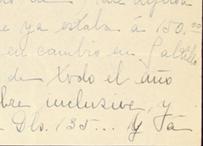 e ya estaba á 150.00
en cambio en Saltillo
de todo el año
bre inclusive, y
Dls. 135... y ya